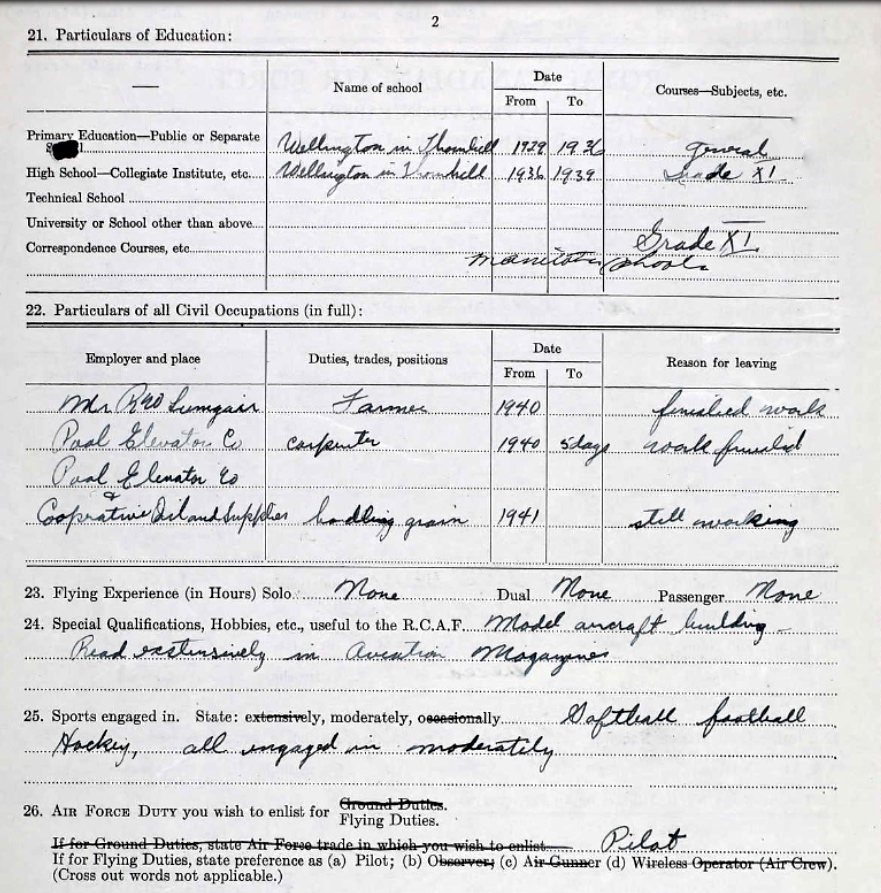 2
21. Particulars of Education:
— Name of school Date Courses—Subjects, etc.
From To
Primary Education—Public or Separate Wellington in Thornhill 1929 1936 general
High School—Collegiate Institute, etc. Wellington in Thornhill 1936 1939 Grade XI
Technical School
University or School other than above
Correspondence Courses, etc. Grade XI
Manitoba schools
22. Particulars of all Civil Occupations (in full):
Employer and place Duties, trades, positions Date Reason for leaving
From To
Mr Lumgair Farmer 1940 finished work
Pool Elevator Co carpenter 1940 5 days work finished
Pool Elevator Co
&
Cooperative Oil and Supplies handling grain 1941 still working
23. Flying Experience (in Hours) Solo None Dual None Passenger None
24. Special Qualifications, Hobbies, etc., useful to the R.C.A.F. Model aircraft building –
Read extensively in Aviation Magazines
25. Sports engaged in. State: extensively, moderately, occasionally Softball football
Hockey, all engaged in moderately
26. AIR FORCE DUTY you wish to enlist for Ground Duties.
Flying Duties.
If for Ground Duties, state Air Force trade in which you wish to enlist Pilot
If for Flying Duties, state preference as (a) Pilot; (b) Observer; (c) Air Gunner (d) Wireless Operator (Air Crew).
(Cross out words not applicable.)